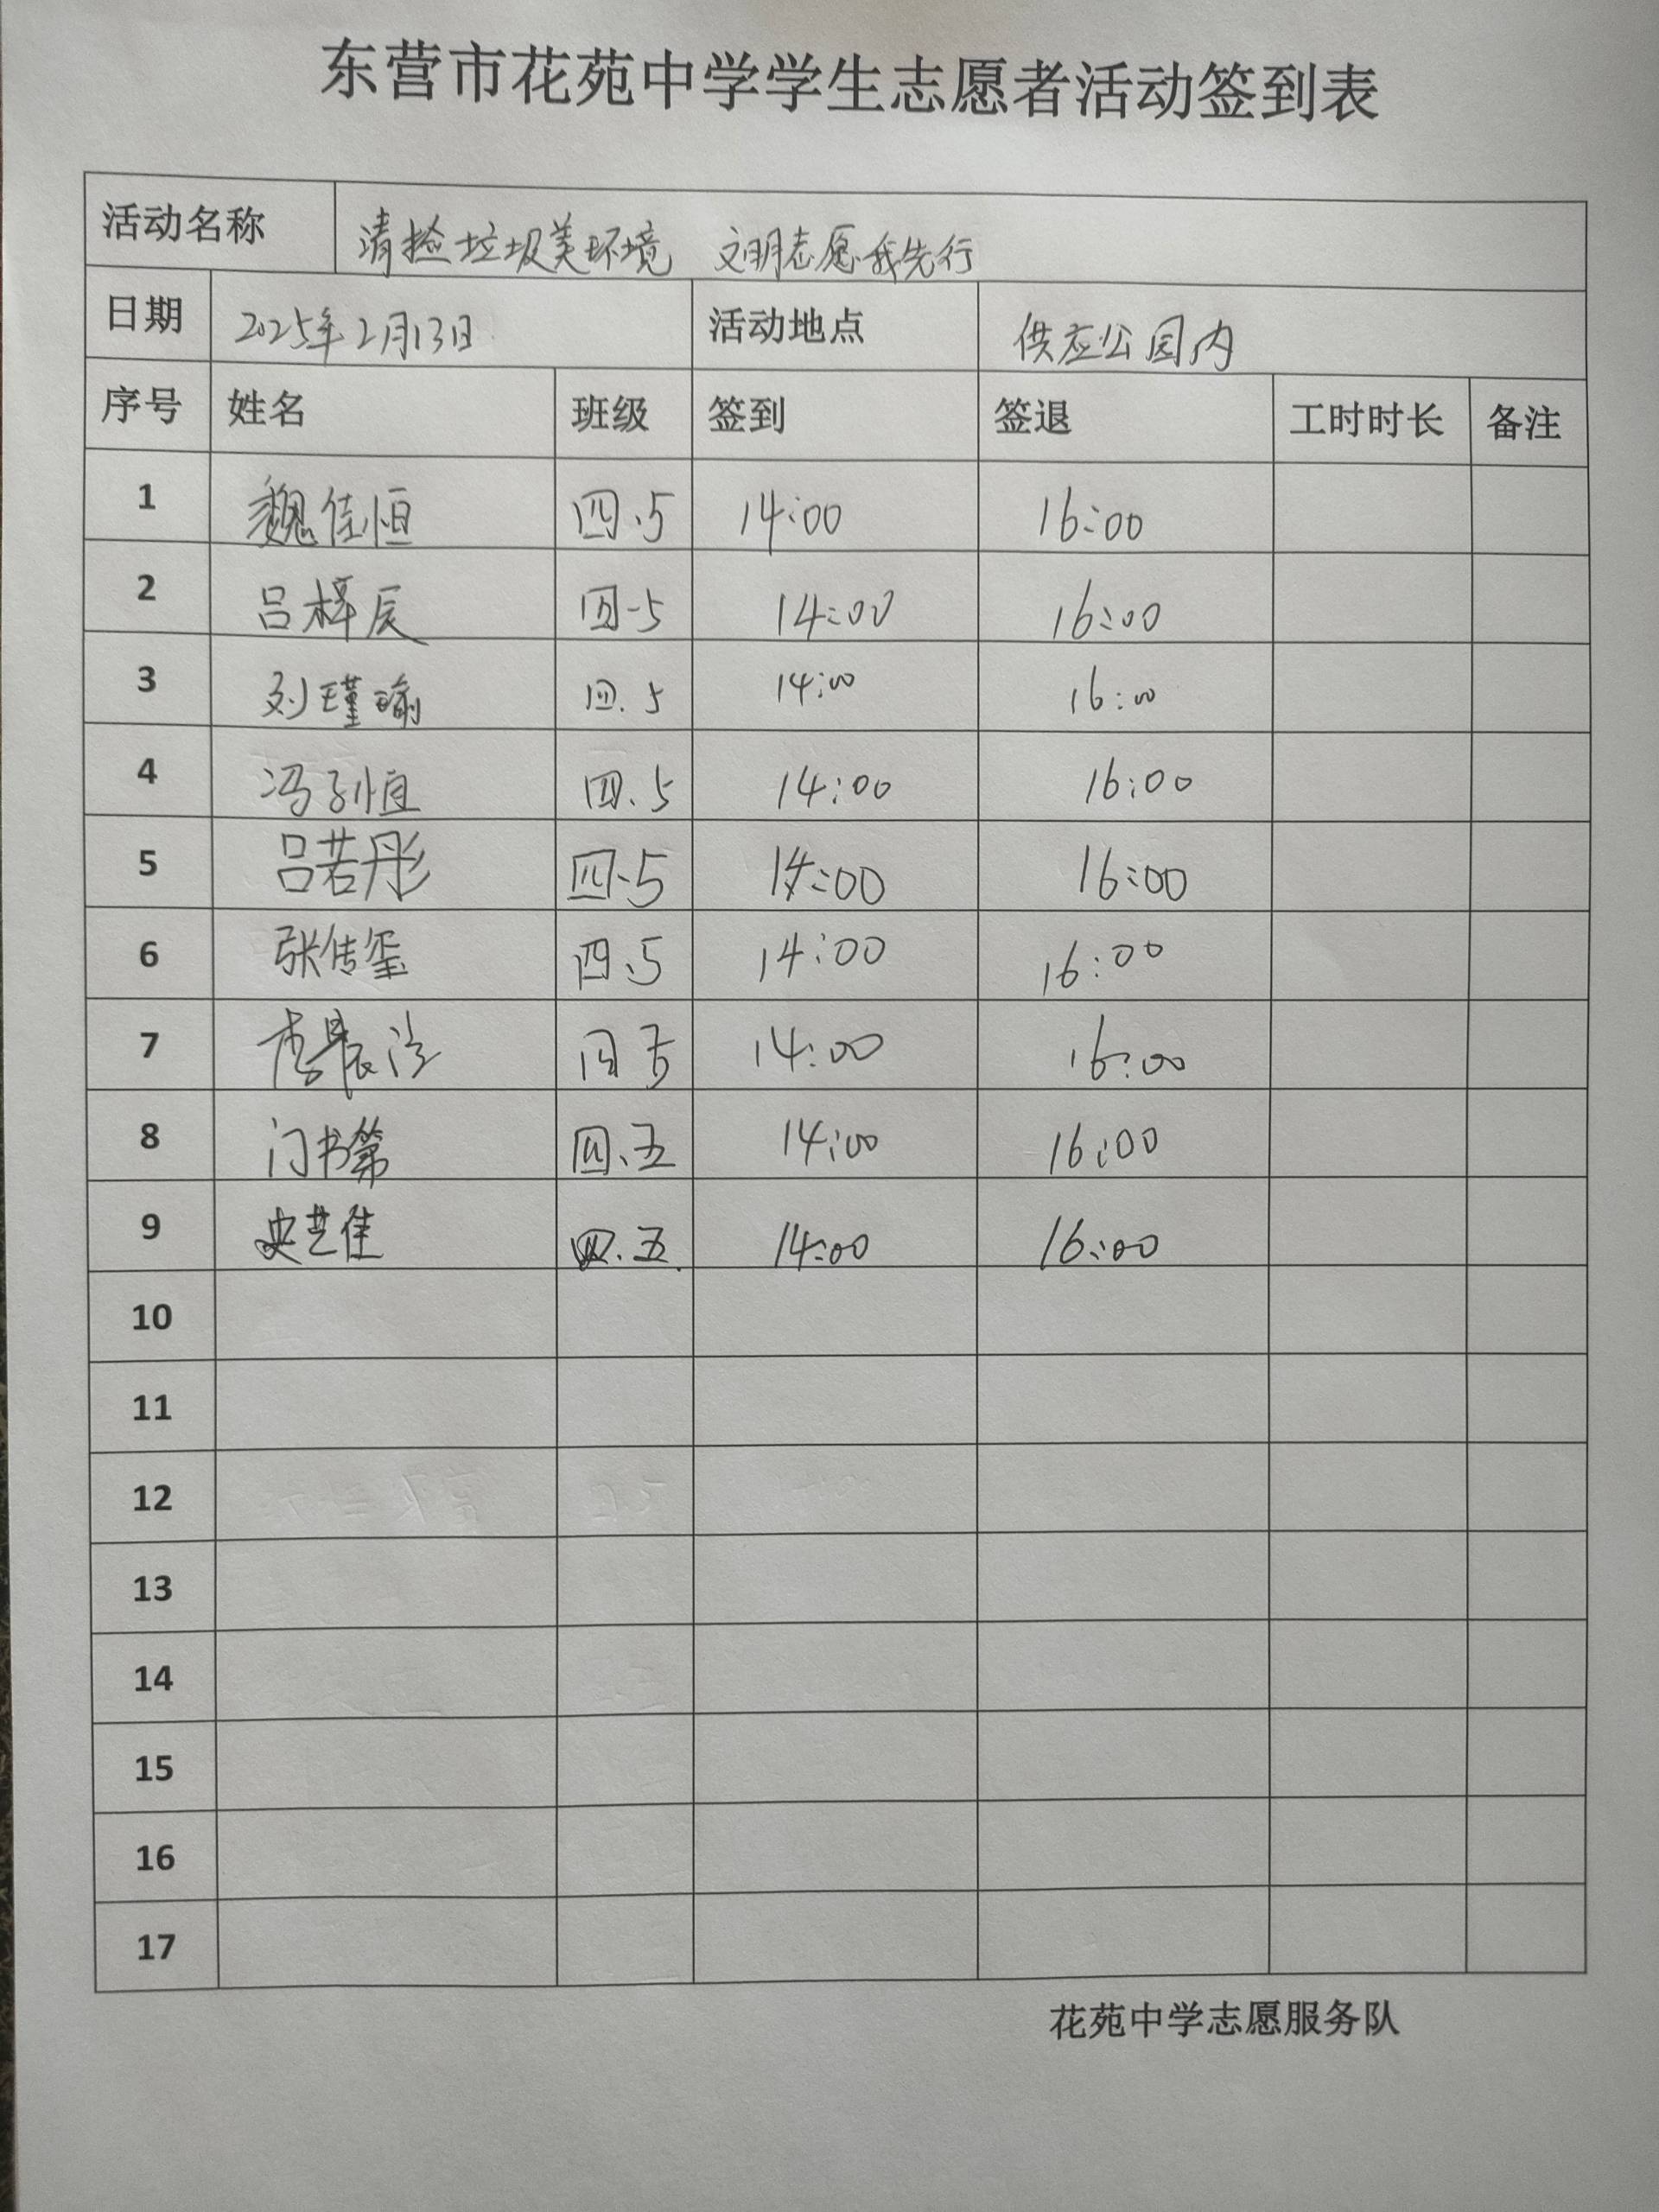 东营市花苑中学学生志愿者活动签到表
活动名称 清捡垃圾美环境 文明志愿我先行
日期 2025年2月13日 活动地点 供应公园内
序号 姓名 班级 签到 签退 工时时长 备注
1 魏佳恒 四.5 14:00 16:00
2 吕梓辰 四-5 14:00 16:00
3 刘瑾瑜 四.5 14:00 16:00
4 冯子恒 四.5 14:00 16:00
5 吕若彤 四-5 14:00 16:00
6 张传玺 四.5 14:00 16:00
7 李晨 四五 14:00 16:00
8 门书 四.五 14:00 16:00
9 史艺佳 四.五. 14:00 16:00
10
11
12
13
14
15
16
17
花苑中学志愿服务队